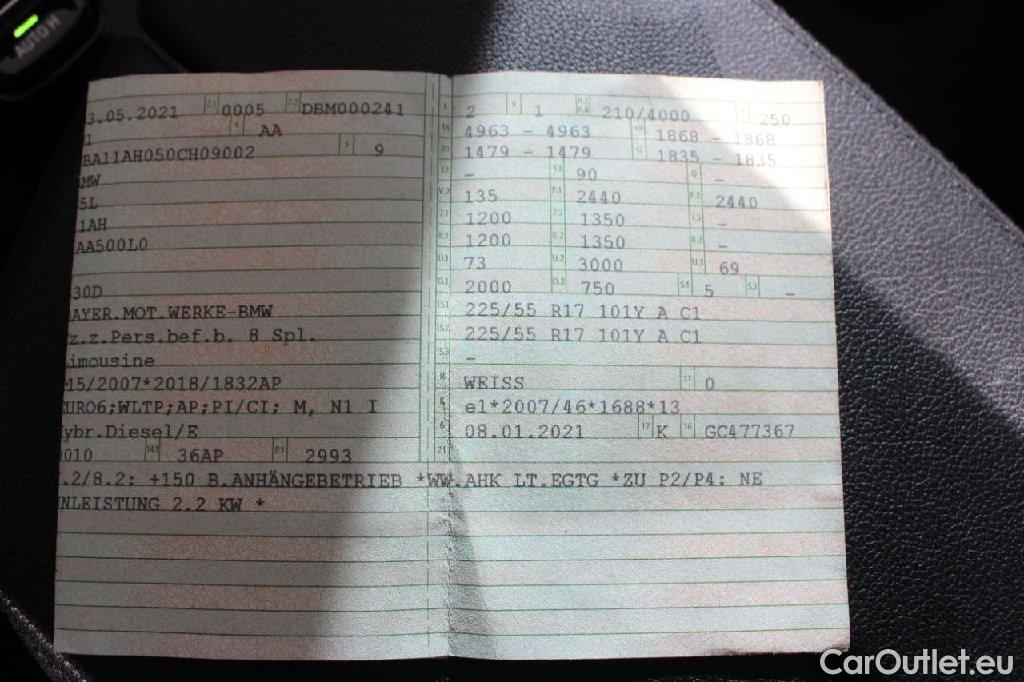 AUTO H
3.05.2021 2.1 0005 2.2 DBM000241
4 AA
BA11AH050CH09002 3 9
MW
5L
1AH
AA500L0
30D
AYER.MOT.WERKE-BMW
z.z.Pers.bef.b. 8 Spl.
imousine
15/2007*2018/1832AP
EURO6;WLTP;AP;PI/CI: M, N1 I
ybr.Diesel/E
0010 14.1 36AP P.1 2993
L 2 9 1 P.2 P.4 210/4000 T 250
18 4963 - 4963 19 1868 - 1868
20 1479 - 1479 G 1835 - 1835
12 - 13 90 Q -
V.7 135 F.1 2440 F.2 2440
7.1 1200 7.2 1350 7.3 -
8.1 1200 8.2 1350 8.3 -
U.1 73 U.2 3000 U.3 69
O.1 2000 O.2 750 S.1 5 S.2 -
15.1 225/55 R17 101Y A C1
15.2 225/55 R17 101Y A C1
15.3 -
R WEISS 11 0
K e1*2007/46*1688*13
6 08.01.2021 17 K 16 GC477367
21
.2/8.2: +150 B.ANHÄNGEBETRIEB *WW.AHK LT.EGTG *ZU P2/P4: NE
NLEISTUNG 2.2 KW *
CarOutlet.eu